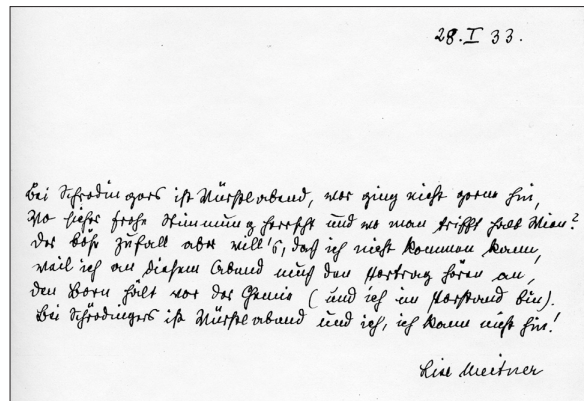 28. I 33.
Bei Schrödingers ist Würstelabend, wer ging nicht gerne hin,
Wo sicher frohe Stimmung herrscht und wo man trifft halb Wien?
Der böse Zufall aber will's, daß ich nicht kommen kann,
weil ich an diesem Abend muß den Vortrag hören an,
den Born hält vor der Chemie (und ich im Vorstand bin).
Bei Schrödingers ist Würstelabend und ich, ich kann nicht hin!
Lise Meitner